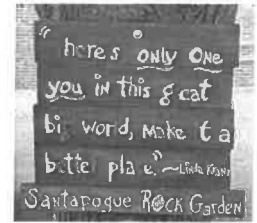 "here's only one
you in this g eat
big world, make t a
bette pla e." ~Linda Kranz
Santapogue Rock Garden